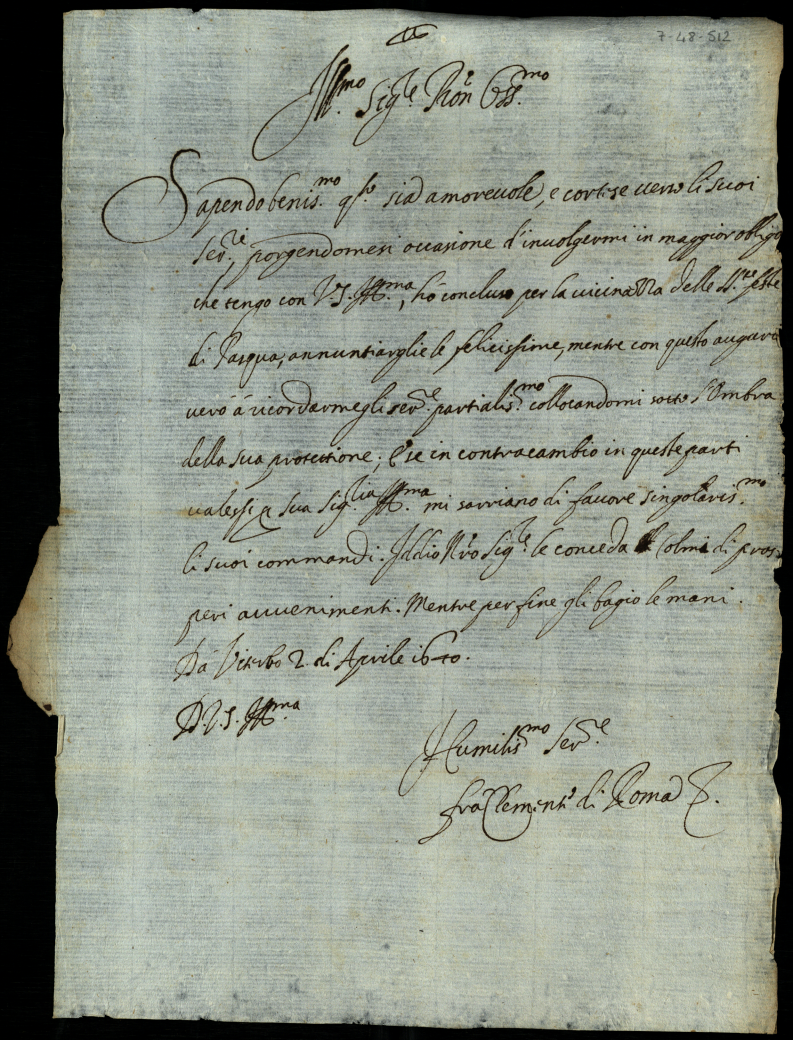 7-48-512
Ill.mo Sig.re Pron Oss.mo
Sapendo benis.mo q.to sia amorevole, e cortese verso li suoi
ser.ri, porgendomesi occasione d'involgermi in maggior obligo
che tengo con V.S. Ill.ma, hò concluso per la vicinanza delle S.te feste
di Pasqua, annuntiarglie le felicissime, mentre con questo augurio
verò à ricordarmegli ser.re partialis.mo collocandomi sotto l'Ombra
della sua protettione; E se in contracambio in queste parti
valessi p Sua Sig.ria Ill.ma mi sarriano di favore singolaris.mo
li suoi commandi. Iddio Nro Sig.re le conceda Colmi di pros-
peri avvenimenti. Mentre per fine gli bagio le mani.
Da Viterbo 2. di Aprile 1640.
D.V.S. Ill.ma
Humilis.mo Ser.re
fra Clemente di Roma